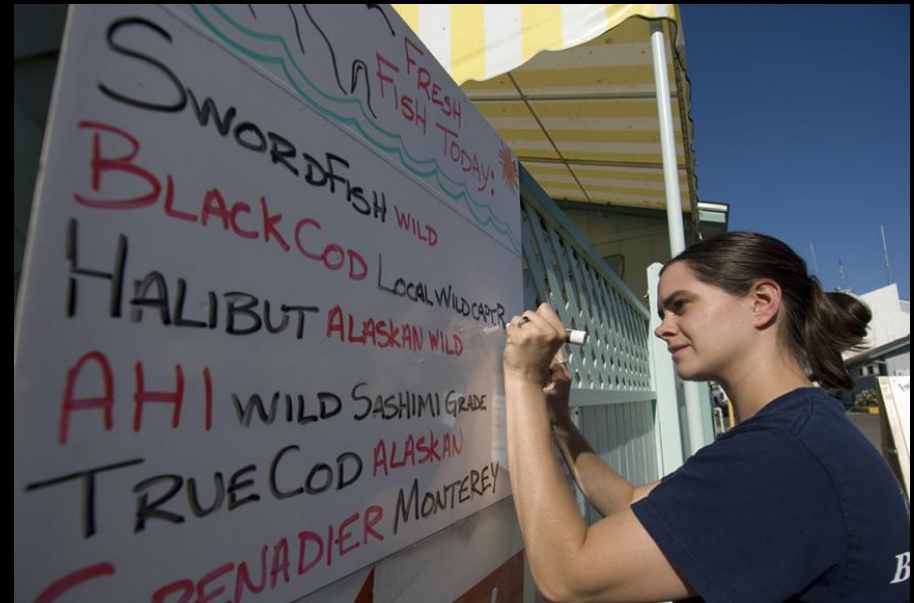 FRESH
FISH TODAY:
SWORDFISH WILD
BLACK COD LOCAL WILD CAPTR
HALIBUT ALASKAN WILD
AHI WILD SASHIMI GRADE
TRUE COD ALASKAN
GRENADIER MONTEREY
B